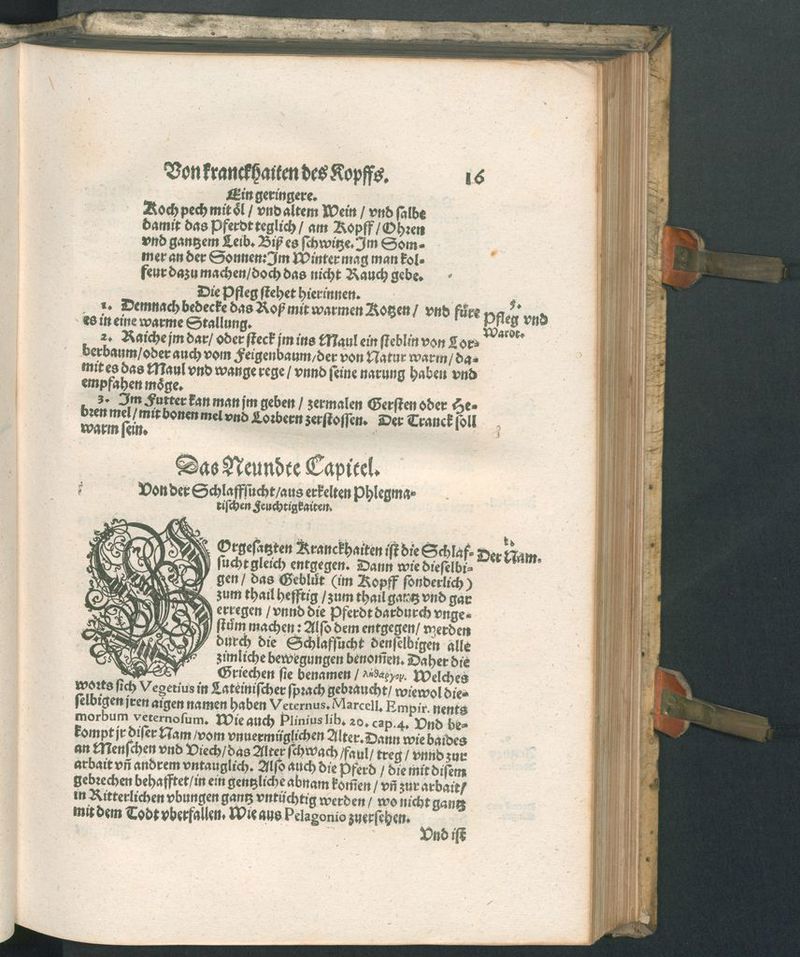 Von kranckhaiten des Kopffs. 16
Ein geringere.
Koch pech mit öl / vnd altem Wein / vnd salbe
damit das Pferdt teglich / am Kopff / Ohren
vnd gantzem Leib. Biß es schwitze. Im Som-
mer an der Sonnen: Im Winter mag man kol-
feur dazu machen / doch das nicht Rauch gebe.
Die Pfleg stehet hierinnen.
1. Demnach bedecke das Roß mit warmen Kotzen / vnd füre
es in eine warme Stallung.
5.
Pfleg vnd
Wardt.
2. Raiche jm dar / oder steck jm ins Maul ein steblin von Lor-
berbaum / oder auch vom Feigenbaum / der von Natur warm / da-
mit es das Maul vnd wange rege / vnnd seine narung haben vnd
empfahen möge.
3. Im Futter kan man jm geben / zermalen Gersten oder He-
bren mel / mit bonen mel vnd Lorbern zerstossen. Der Tranck soll
warm sein.
Das Neundte Capitel.
Von der Schlaffsucht / aus erkelten Phlegma-
tischen Feuchtigkaiten.
VOrgesatzten Kranckhaiten ist die Schlaf-
sucht gleich entgegen. Dann wie dieselbi-
gen / das Geblüt (im Kopff sonderlich)
zum thail hefftig / zum thail gantz vnd gar
erregen / vnnd die Pferdt dardurch vnge-
stüm machen: Also dem entgegen / werden
durch die Schlafsucht denselbigen alle
zimliche bewegungen benom̃en. Daher die
Griechen sie benamen / Welches
worts sich Vegetius in Lateinischer sprach gebraucht / wiewol die-
selbigen jren aigen namen haben Veternus. Marcell. Empir. nents
morbum veternosum. Wie auch Plinius lib. 20. cap. 4. Vnd be-
kompt jr diser Nam / vom vnuermüglichen Alter. Dann wie baides
an Menschen vnd Viech / das Alter schwach / faul / treg / vnnd zur
arbait vñ andrem vntauglich. Also auch die Pferd / die mit disem
gebrechen behafftet / in ein gentzliche abnam kom̃en / vñ zur arbait /
in Ritterlichen vbungen gantz vntüchtig werden / wo nicht gantz
mit dem Todt vberfallen. Wie aus Pelagonio zuersehen.
Der Nam.
Vnd ist